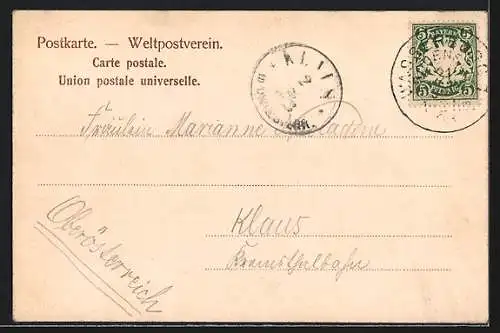 Postkarte. — Weltpostverein.
Carte postale.
Union postale universelle.
BAYERN
5 5
5 5
PFENNIG
Fräulein Marianne
Klaus
Kremsthalbahn
Oberösterreich